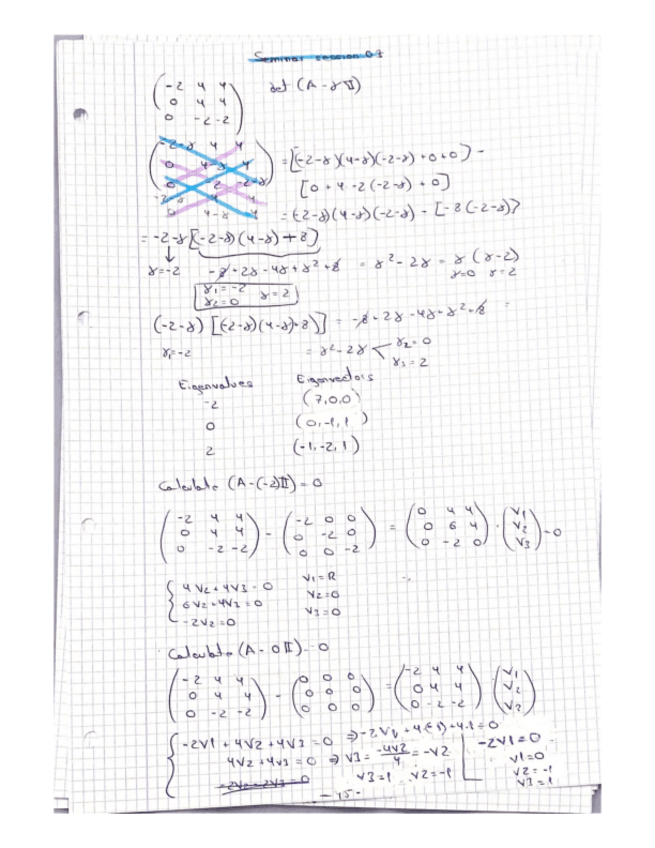 Seminar session 07
( -2 4 4 ; 0 4 4 ; 0 -2 -2 ) det (A - γ𝕀)
( -2-γ 4 4 ; 0 4-γ 4 ; 0 -2 -2-γ ) = [(-2-γ)(4-γ)(-2-γ) + 0 + 0] -
-2-γ 4 4
[0 + 4 · -2 (-2-γ) + 0]
0 4-γ 4 = (-2-γ)(4-γ)(-2-γ) - [-8(-2-γ)]
= -2-γ [(-2-γ)(4-γ) + 8]
γ=-2 -8 + 2γ - 4γ + γ² + 8 = γ² - 2γ = γ (γ-2)
γ=0 γ=2
γ₁ = -2
γ₂ = 0 γ = 2
(-2-γ) [(-2-γ)(4-γ)+8)] = -8 + 2γ - 4γ + γ² + 8 =
γ₁=-2 = γ² - 2γ < γ₂ = 0
γ₃ = 2
Eigenvalues Eigenvectors
-2 (7,0,0)
0 (0,-1,1)
2 (-1,-2,1)
Calculate (A-(-2)𝕀) = 0
( -2 4 4 ; 0 4 4 ; 0 -2 -2 ) - ( -2 0 0 ; 0 -2 0 ; 0 0 -2 ) = ( 0 4 4 ; 0 6 4 ; 0 -2 0 ) · ( V1 ; V2 ; V3 ) = 0
4V2 + 4V3 = 0 V1 = R
6V2 + 4V3 = 0 V2 = 0
-2V2 = 0 V3 = 0
Calculate (A - 0𝕀) = 0
( -2 4 4 ; 0 4 4 ; 0 -2 -2 ) - ( 0 0 0 ; 0 0 0 ; 0 0 0 ) = ( -2 4 4 ; 0 4 4 ; 0 -2 -2 ) ( V1 ; V2 ; V3 )
-2V1 + 4V2 + 4V3 = 0 ⇒ -2V1 + 4(-1) + 4·1 = 0 -2V1 = 0
4V2 + 4V3 = 0 ⇒ V3 = -4V2/4 = -V2 V1 = 0
-2V2 - 2V3 = 0 V3 = 1 V2 = -1 V2 = -1
V3 = 1
- 15 -